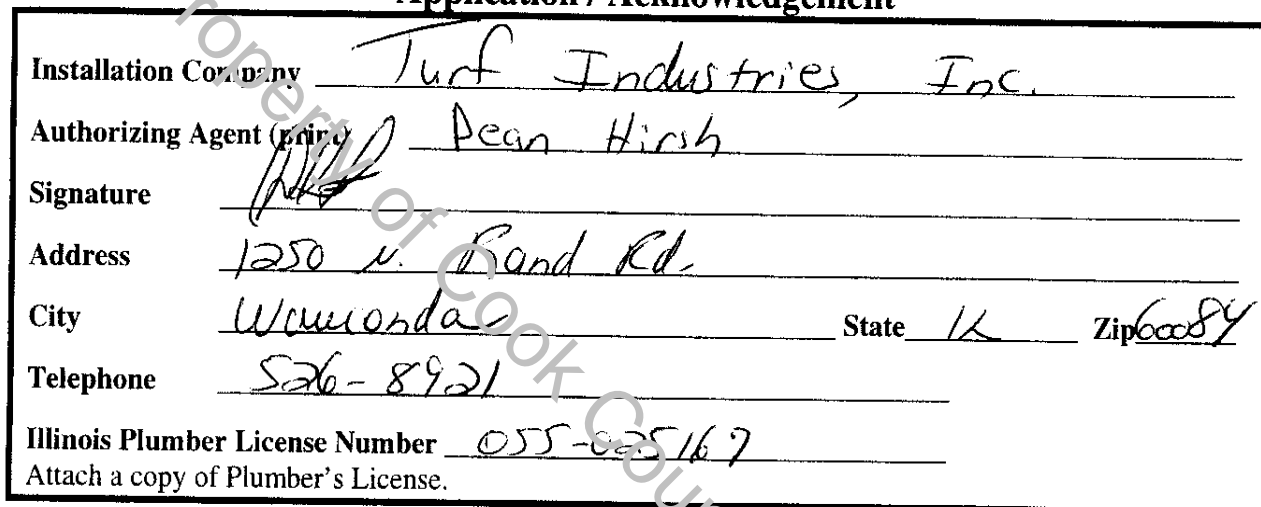 Application / Acknowledgement
Installation Company Turf Industries, Inc.
Authorizing Agent (print) Dean Hirsh
Signature
Address 1250 N. Rand Rd.
City Wauconda State IL Zip 60084
Telephone 526-8921
Illinois Plumber License Number 055-025167
Attach a copy of Plumber's License.
Property of Cook Coun